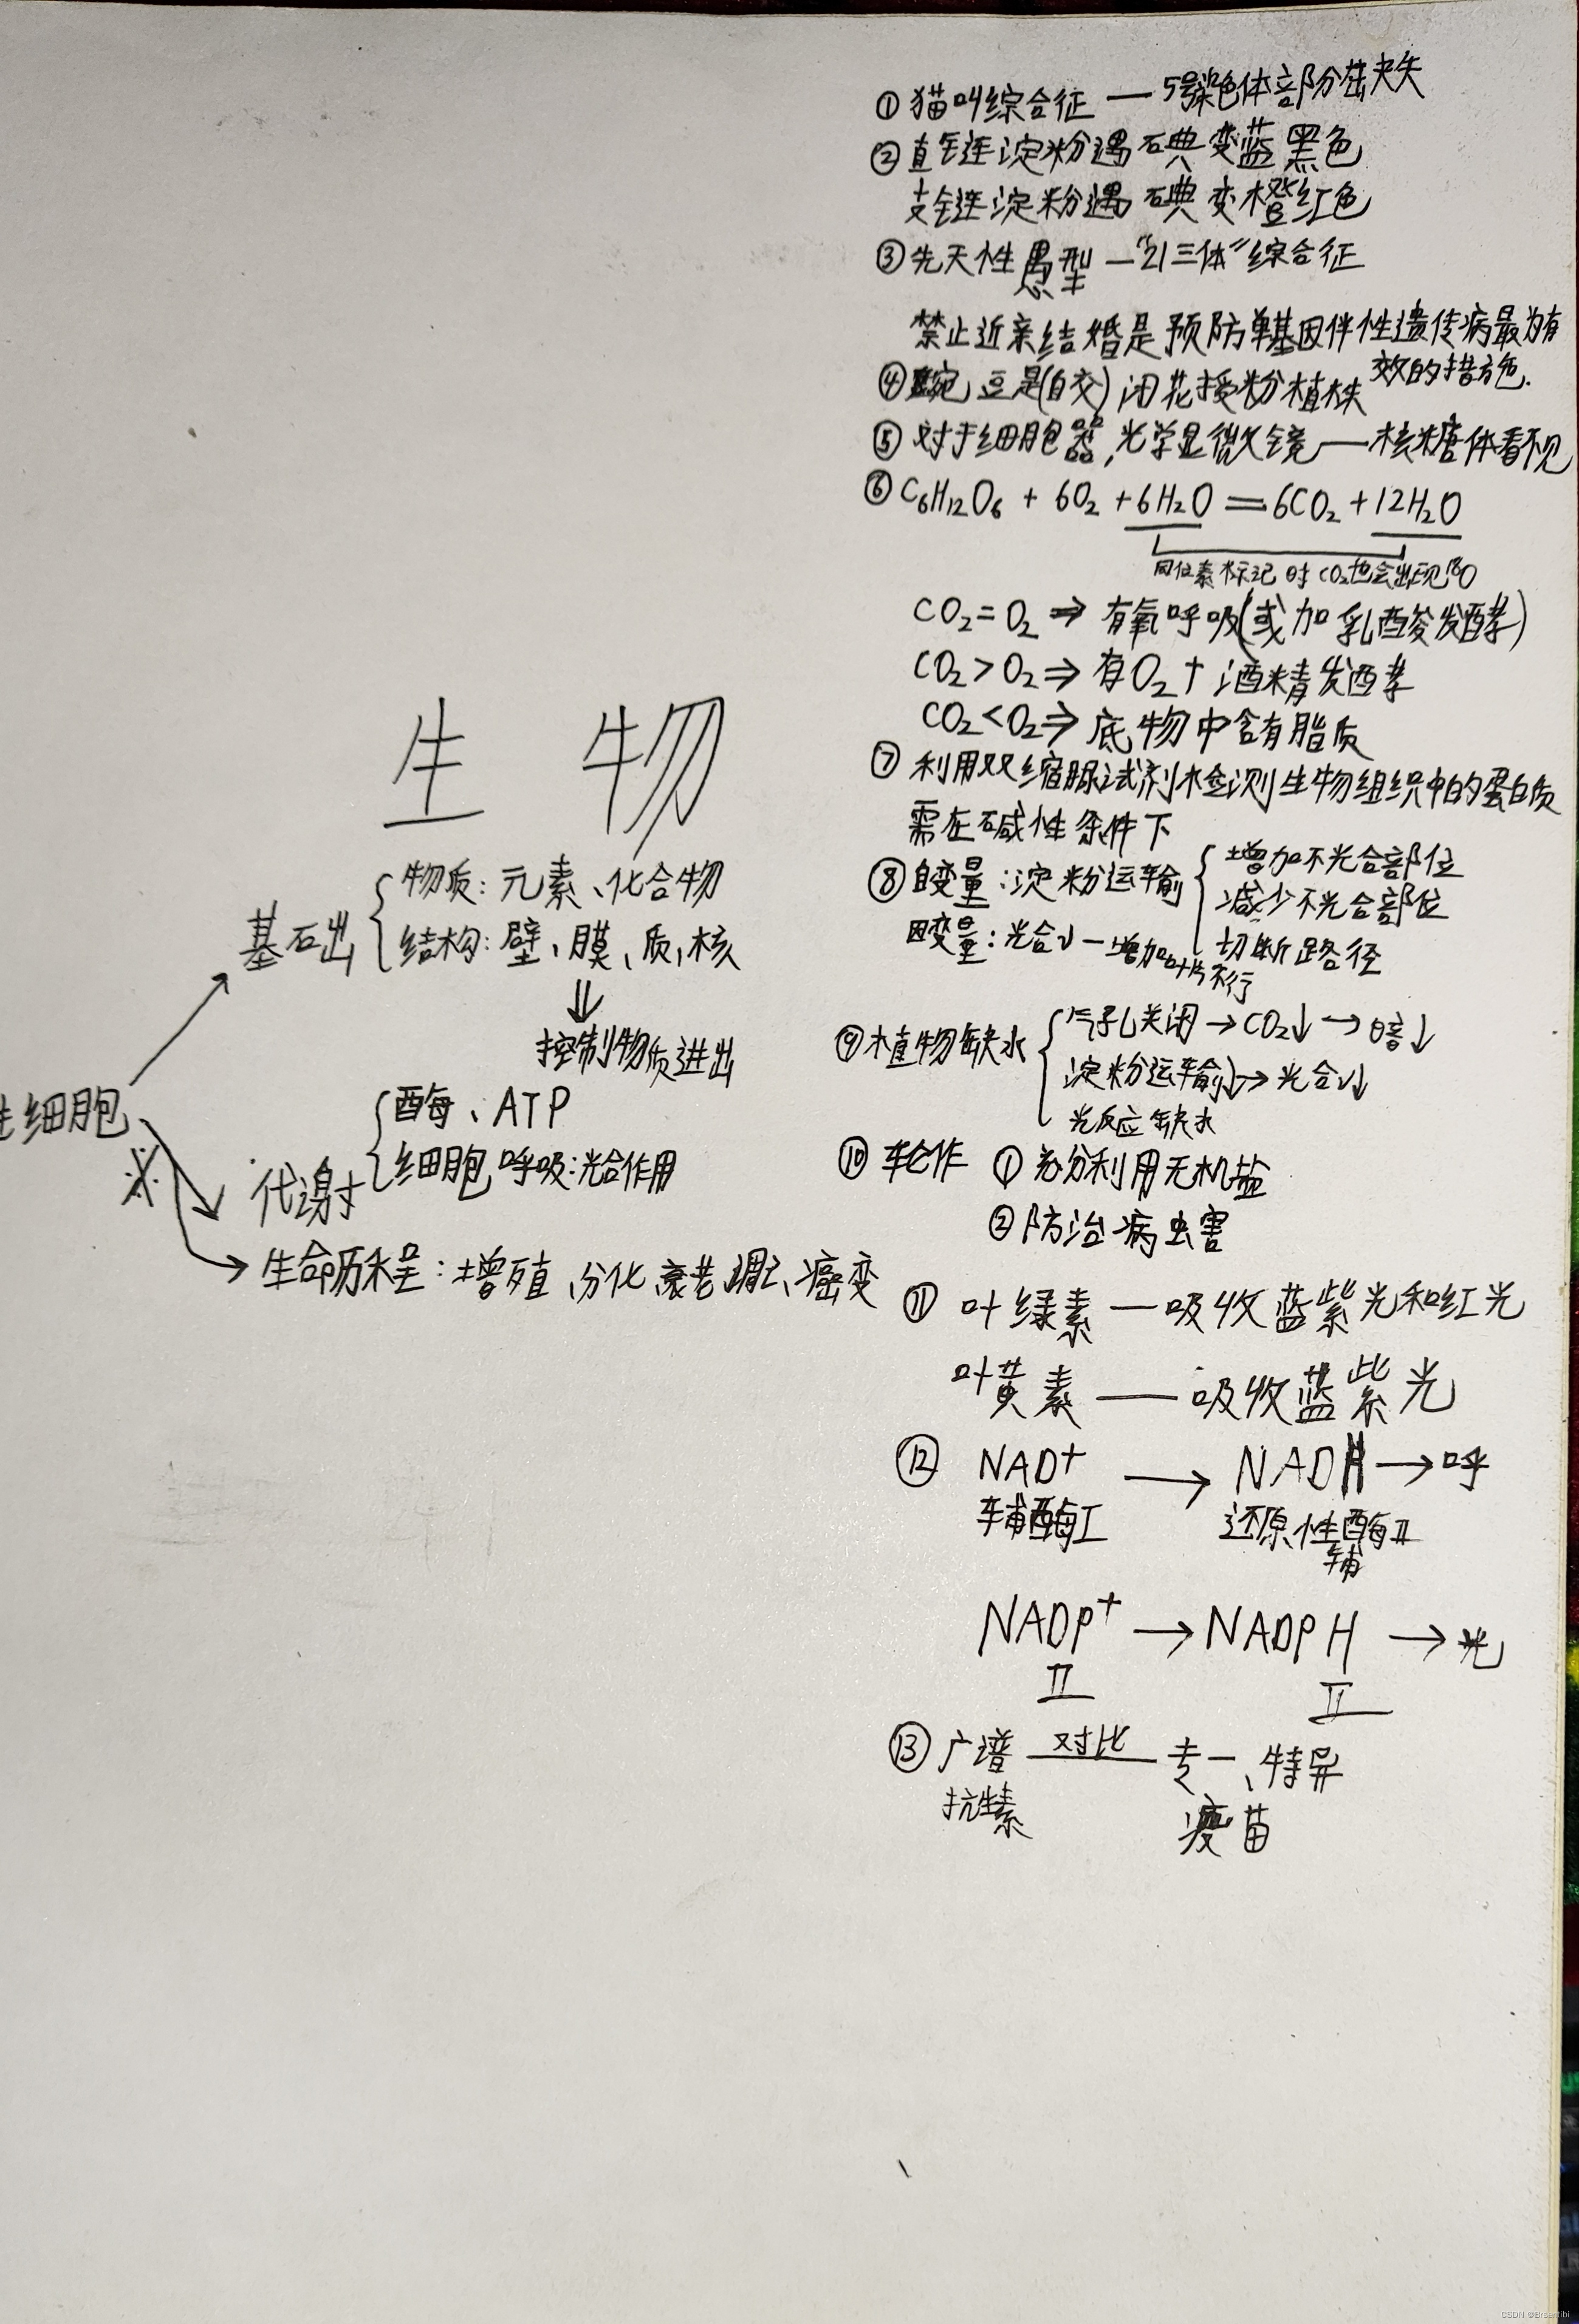 生 物
基础
物质：元素、化合物
结构：壁、膜、质、核
⇓
控制物质进出
细胞
※
代谢
酶、ATP
细胞呼吸：光合作用
生命历程：增殖、分化、衰老、凋亡、癌变
① 猫叫综合征 — 5号染色体部分缺失
② 直链淀粉遇碘变蓝黑色
支链淀粉遇碘变橙红色
③ 先天性愚型 — “21三体”综合征
禁止近亲结婚是预防单基因伴性遗传病最为有
效的措施.
④ 豌豆是(自交)闭花授粉植株
⑤ 对于细胞器，光学显微镜 — 核糖体看不见
⑥ C₆H₁₂O₆ + 6O₂ + 6H₂O = 6CO₂ + 12H₂O
同位素标记时CO₂也会出现¹⁸O
CO₂ = O₂ ⇒ 有氧呼吸(或加乳酸发酵)
CO₂ > O₂ ⇒ 有O₂ + 酒精发酵
CO₂ < O₂ ⇒ 底物中含有脂质
⑦ 利用双缩脲试剂检测生物组织中的蛋白质
需在碱性条件下
⑧ 自变量：淀粉运输
增加不光合部位
减少不光合部位
切断路径
因变量：光合v — 增加叶片不行
⑨ 植物缺水
气孔关闭 → CO₂↓ → 暗↓
淀粉运输↓ → 光合v↓
光反应缺水
⑩ 轮作 ① 充分利用无机盐
② 防治病虫害
⑪ 叶绿素 — 吸收蓝紫光和红光
叶黄素 — 吸收蓝紫光
⑫ NAD⁺ → NADH → 呼
辅酶I 还原性辅酶II
NADP⁺ → NADPH → 光
II II
⑬ 广谱 对比 专一、特异
抗生素 疫苗
CSDN @Brsentibi